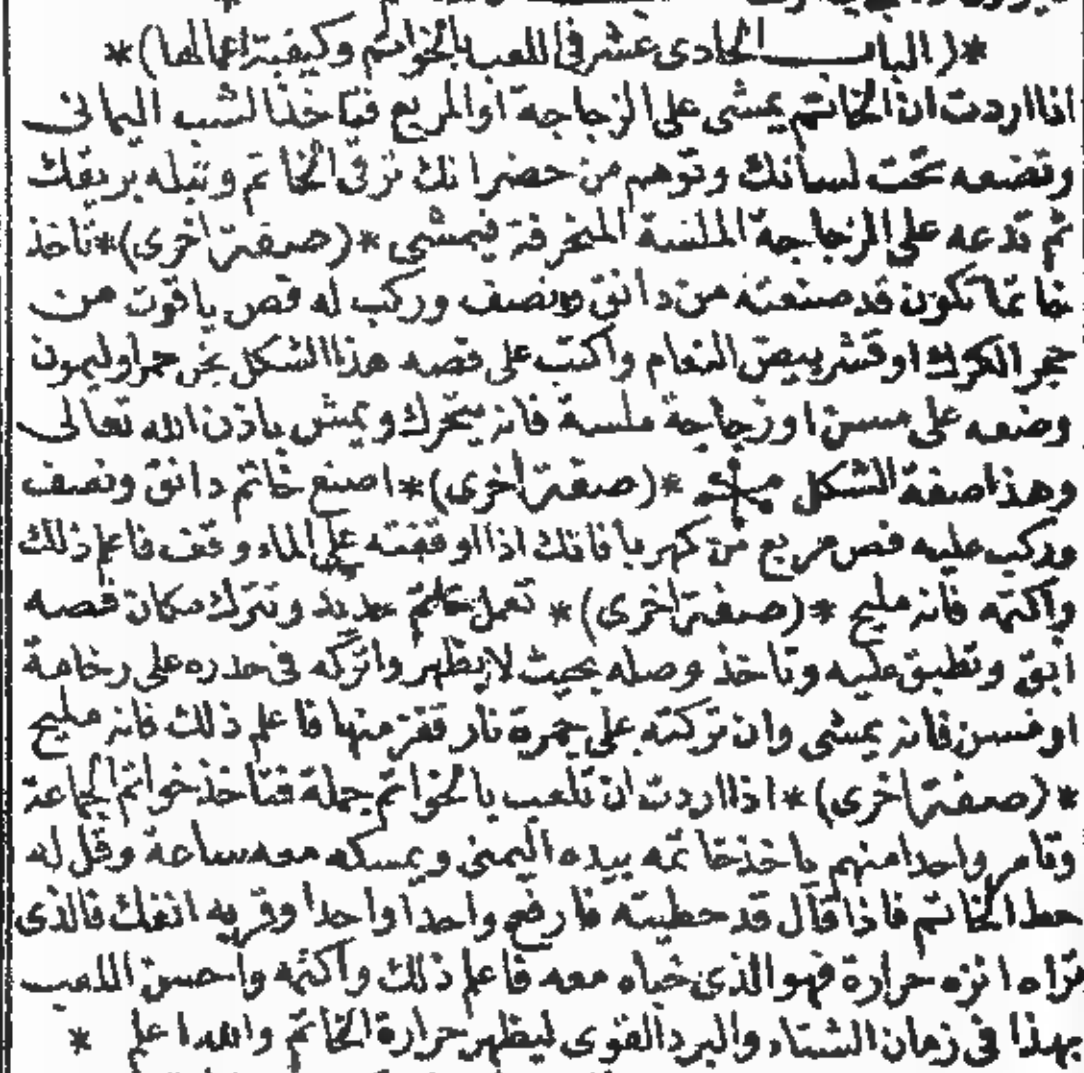 *(الباب الحادى عشر فى اللعب بالخواتم وكيفية اعمالها)*
اذا اردت ان الخاتم يمشى على الزجاجة او المريع فتأخذ الشب اليمانى
وتضعه تحت لسانك وتوهم من حضر انك ترقى الخاتم وتبله بريقك
ثم تدعه على الزجاجة الملسة المنحرفة فيمشى *(صفة اخرى)* تاخذ
خاتما تكون قد صنعته من دانق ونصف وركب له فص ياقوت من
حجر الكرك او قشر بيض النعام واكتب على فصه هذا الشكل بخل خمر اوليمون
وضعه على مسن او زجاجة ملسة فانه يتحرك ويمش باذن الله تعالى
وهذا صفة الشكل *(صفة اخرى)* اصنع خاتم دانق ونصف
وركب عليه فص مربع من كهربا فانك اذا اوقفته على الماء وقف فاعلم ذلك
واكتمه فانه مليح *(صفة اخرى)* تعمل خاتم حديد وتترك مكان فصه
ابق وتطبق عليه وتاخذ وصله بحيث لا يظهر واتركه فى حدره على رخامة
او مسن فانه يمشى وان تركته على جمرة نار قفز منها فاعلم ذلك فانه مليح
*(صفة اخرى)* اذا اردت ان تلعب بالخواتم جملة فتأخذ خواتم الجماعة
وتامر واحدا منهم ياخذ خاتمه بيده اليمنى ويمسكه معه ساعة وقل له
حط الخاتم فاذا قال قد حطيته فارفع واحدا واحدا وقربه انفك فالذى
تراه انزه حرارة فهو الذى خباه معه فاعلم ذلك واكتمه واحسن اللعب
بهذا فى زمان الشتاء والبرد القوى ليظهر حرارة الخاتم والله اعلم *